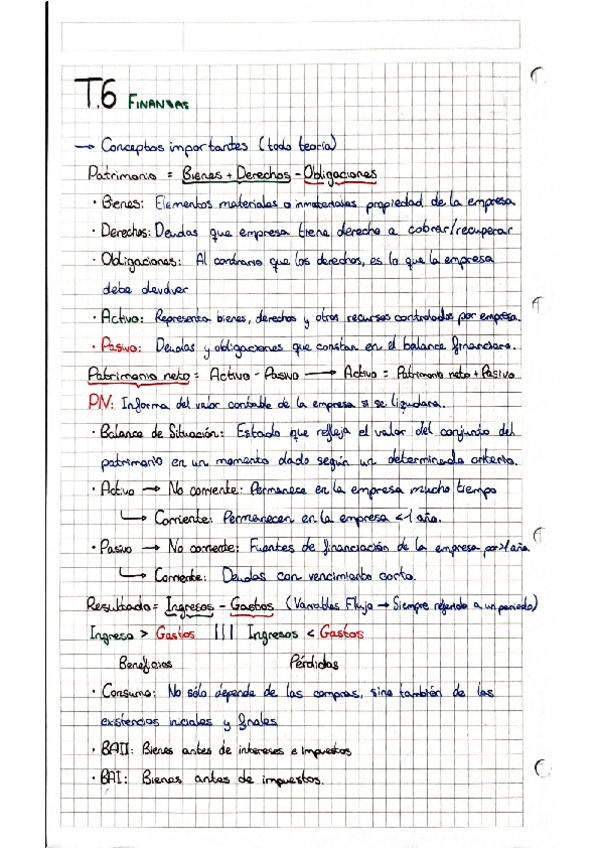 T.6 FINANZAS
→ Conceptos importantes (todo teoría)
Patrimonio = Bienes + Derechos - Obligaciones
· Bienes: Elementos materiales o inmateriales propiedad de la empresa
· Derechos: Deudas que empresa tiene derecho a cobrar/recuperar
· Obligaciones: Al contrario que los derechos, es lo que la empresa
debe devolver
· Activo: Representa bienes, derechos y otros recursos controlados por empresa.
· Pasivo: Deudas y obligaciones que constan en el balance financiero.
Patrimonio neto = Activo - Pasivo → Activo = Patrimonio neto + Pasivo
PN: Informa del valor contable de la empresa si se liquidara.
· Balance de Situación: Estado que refleja el valor del conjunto del
patrimonio en un momento dado según un determinado criterio.
· Activo → No corriente: Permanece en la empresa mucho tiempo
↳ Corriente: Permanecen en la empresa <1 año.
· Pasivo → No corriente: Fuentes de financiación de la empresa por >1 año.
↳ Corriente: Deudas con vencimiento corto.
Resultado = Ingresos - Gastos (Variables Flujo → Siempre referido a un periodo)
Ingreso > Gastos ||| Ingresos < Gastos
Beneficios Pérdidas
· Consumo: No sólo depende de las compras, sino también de las
existencias iniciales y finales
· BAII: Bienes antes de intereses e Impuestos
· BAI: Bienes antes de impuestos.